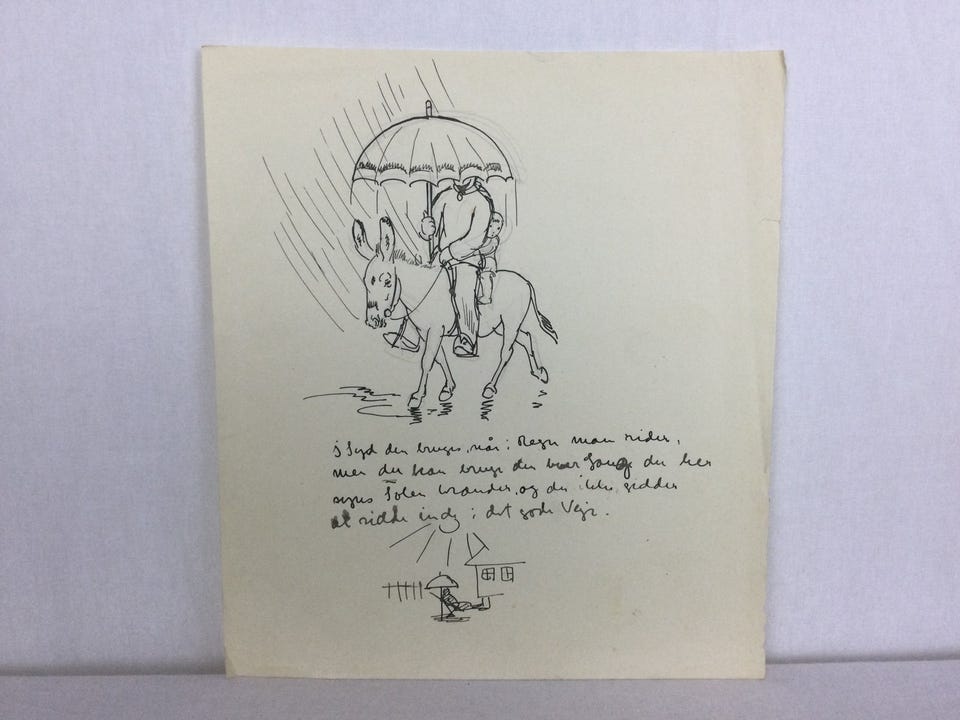 i Syd den bruges, når i Regn man rider,
men du kan bruge den hver Gang du her
synes Solen brænder, og du ikke gidder
at ridde ind i det gode Vejr.